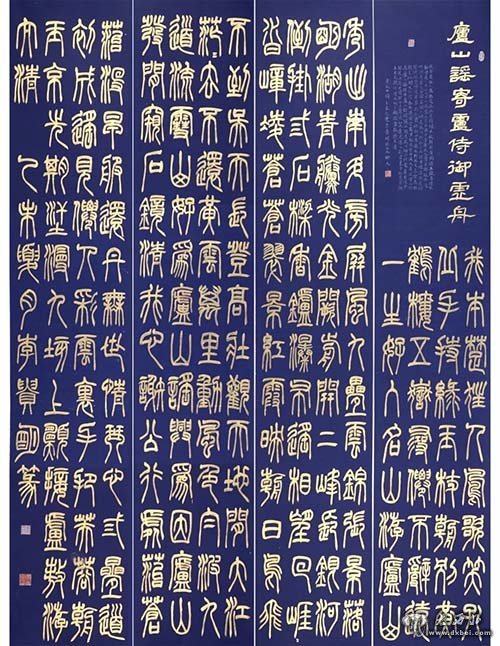 廬山謠寄盧侍御虛舟
我本楚狂人鳳歌笑孔
丘手持綠玉杖朝別黃
鶴樓五嶽尋仙不辭遠
一生好入名山遊廬山
秀出南斗傍屏風九疊雲錦張影落
明湖青黛光金闕前開二峰長銀河
倒掛三石梁香爐瀑布遙相望回崖
沓嶂淩蒼蒼翠影紅霞映朝日鳥飛
不到吳天長登高壯觀天地間大江
茫去不還黃雲萬里動風色白波九
道流雪山好為廬山謠興為因廬山
發閒窺石鏡清我心謝公行處蒼
苔沒早服還丹無世情琴心三疊道
初成遙見仙人彩雲裏手把芙蓉朝
玉京先期汗漫九垓上願接盧敖遊
太清 乙未月李明篆
www.dkbei.com